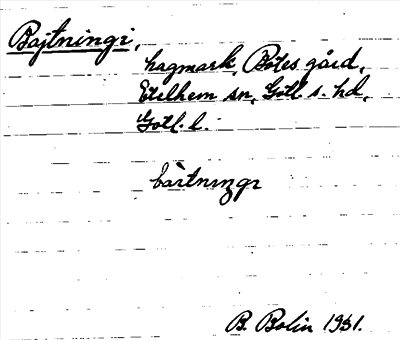 Bajtningi,
hagmark, Botes gård,
Etelhem sn, Gotl. s. hd,
Gotl. l.
bàıtnıŋgı
B. Bolin 1931.